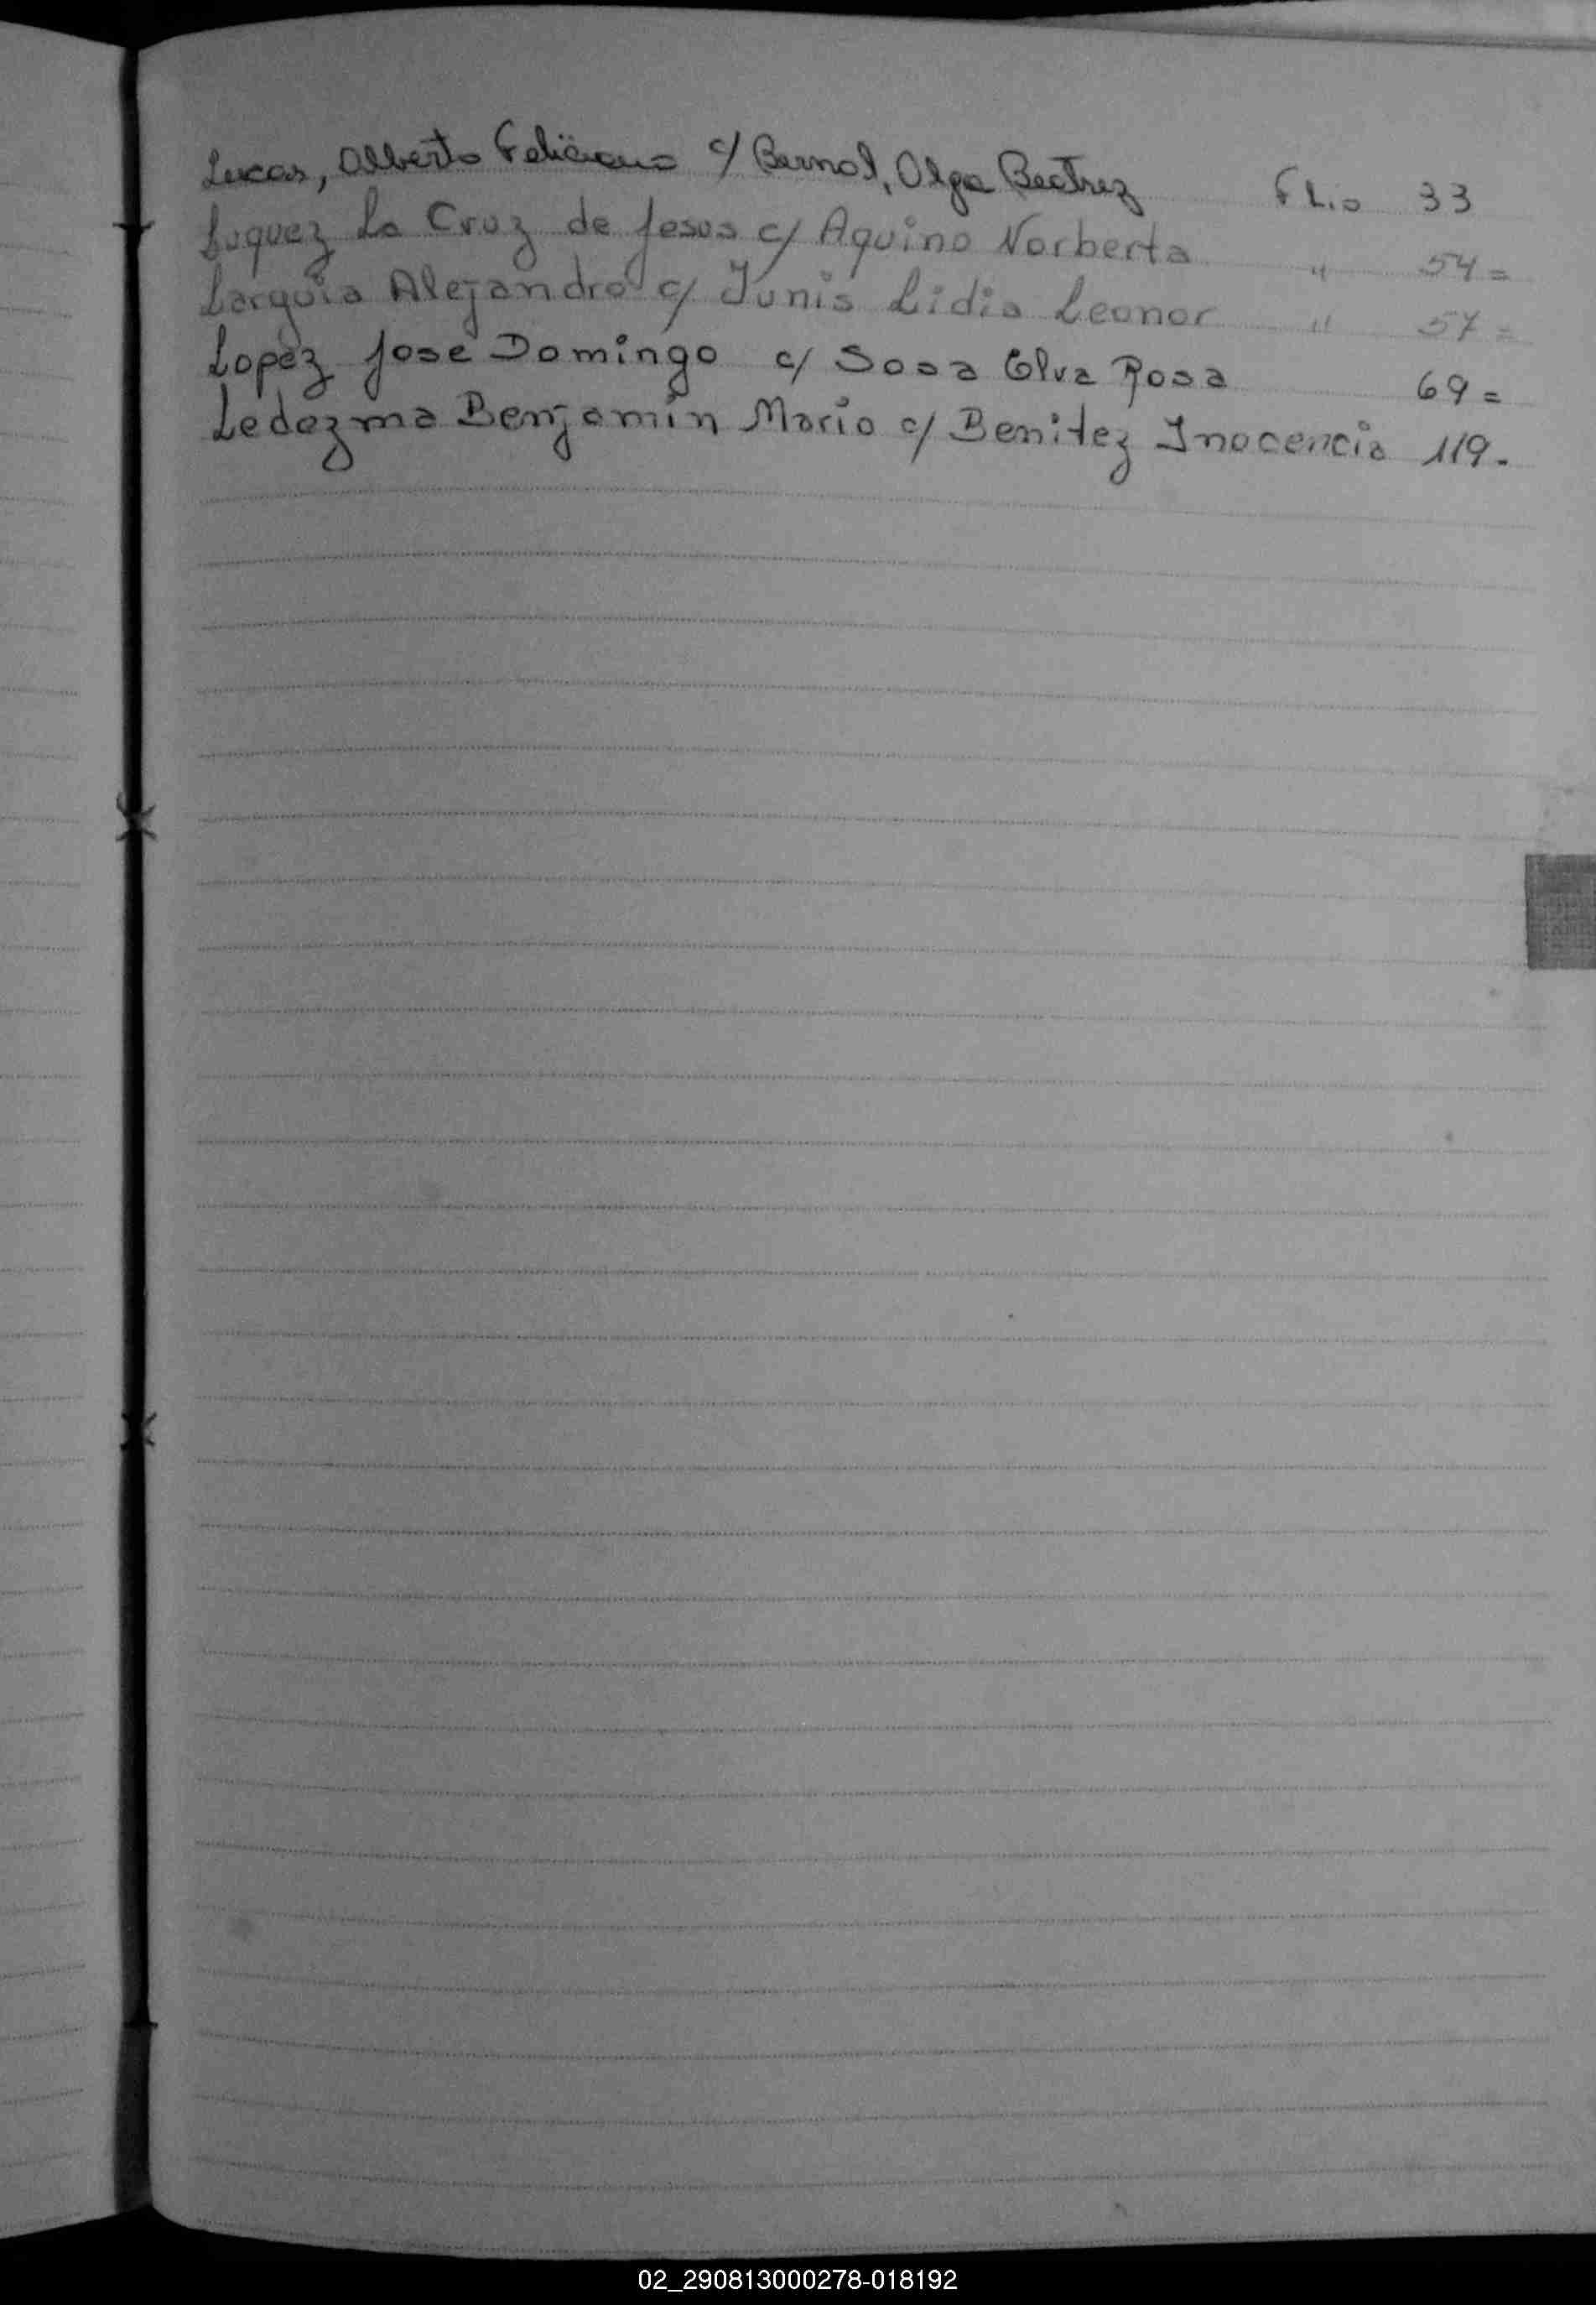 Lucas, Alberto Feliciano c/ Bernal, Olga Beatriz Flio 33
Luquez La Cruz de Jesus c/ Aquino Norberta " 54=
Larquia Alejandro c/ Junis Lidia Leonor " 57=
Lopez Jose Domingo c/ Sosa Elva Rosa 69=
Ledezma Benjamin Mario c/ Benitez Inocencia 119.
02_290813000278-018192